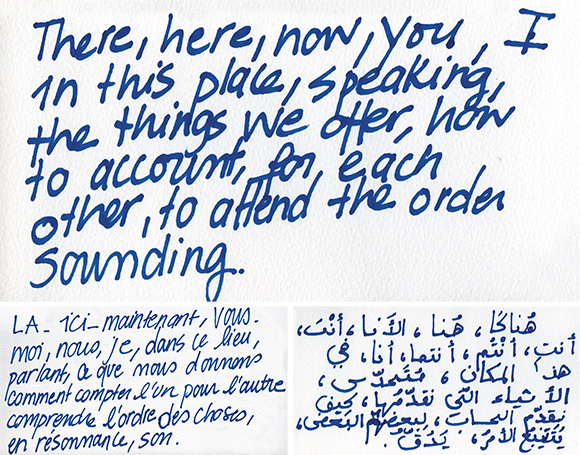 There, here, now, you, I
in this place, speaking,
the things we offer, how
to account, for each
other, to attend the order
sounding.
LA_ ici_ maintenant, vous-
moi, nous, je, dans ce lieu,
parlant, ce que nous donnons
comment compter l'un pour l'autre
comprendre l'ordre des choses,
en résonnance, son.
هُناكَا، هُنا، الآنا، أنْتَ،
أنتِ، أَنْتُم، أنتما، أنا، في
هذا المكان، مُتَحدّس،
الأشياء التي نقدّمها، كيف
نقدّم الحساب، لبعضهم البعض،
الأمرُ، يَدُقّ.